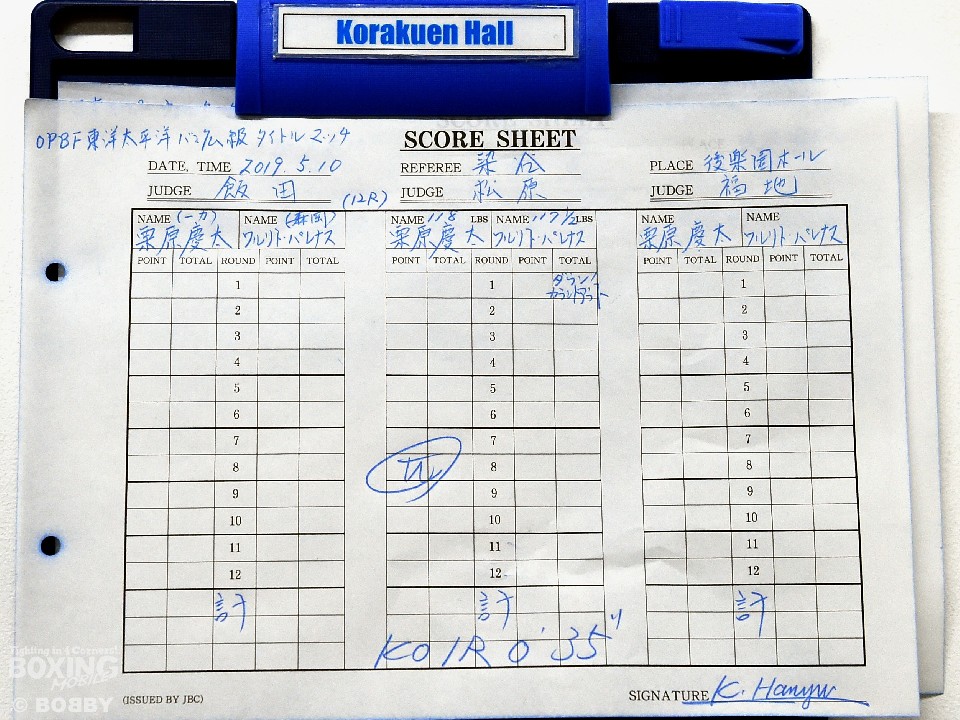 Korakuen Hall
OPBF東洋太平洋バンタム級タイトルマッチ
SCORE SHEET
DATE, TIME 2019.5.10 REFEREE 染谷 PLACE 後楽園ホール
JUDGE 飯田 (12R) JUDGE 松原 JUDGE 福地
NAME (一力) NAME (森岡) NAME 118 LBS NAME 117 1/2 LBS NAME NAME
栗原慶太 ワルリト・パレナス 栗原慶太 ワルリト・パレナス 栗原慶太 ワルリト・パレナス
POINT TOTAL ROUND POINT TOTAL POINT TOTAL ROUND POINT TOTAL POINT TOTAL ROUND POINT TOTAL
1 1 ダウン 1
カウントアウト
2 2 2
3 3 3
4 4 4
5 5 5
6 6 6
7 7 7
8 8 8
9 9 9
10 10 10
11 11 11
12 12 12
計 計 計
KO 1R 0'35"
Fighting in 4 Corners!
BOXING
MOBILES
© BOBBY
(ISSUED BY JBC) SIGNATURE K. Hanyu